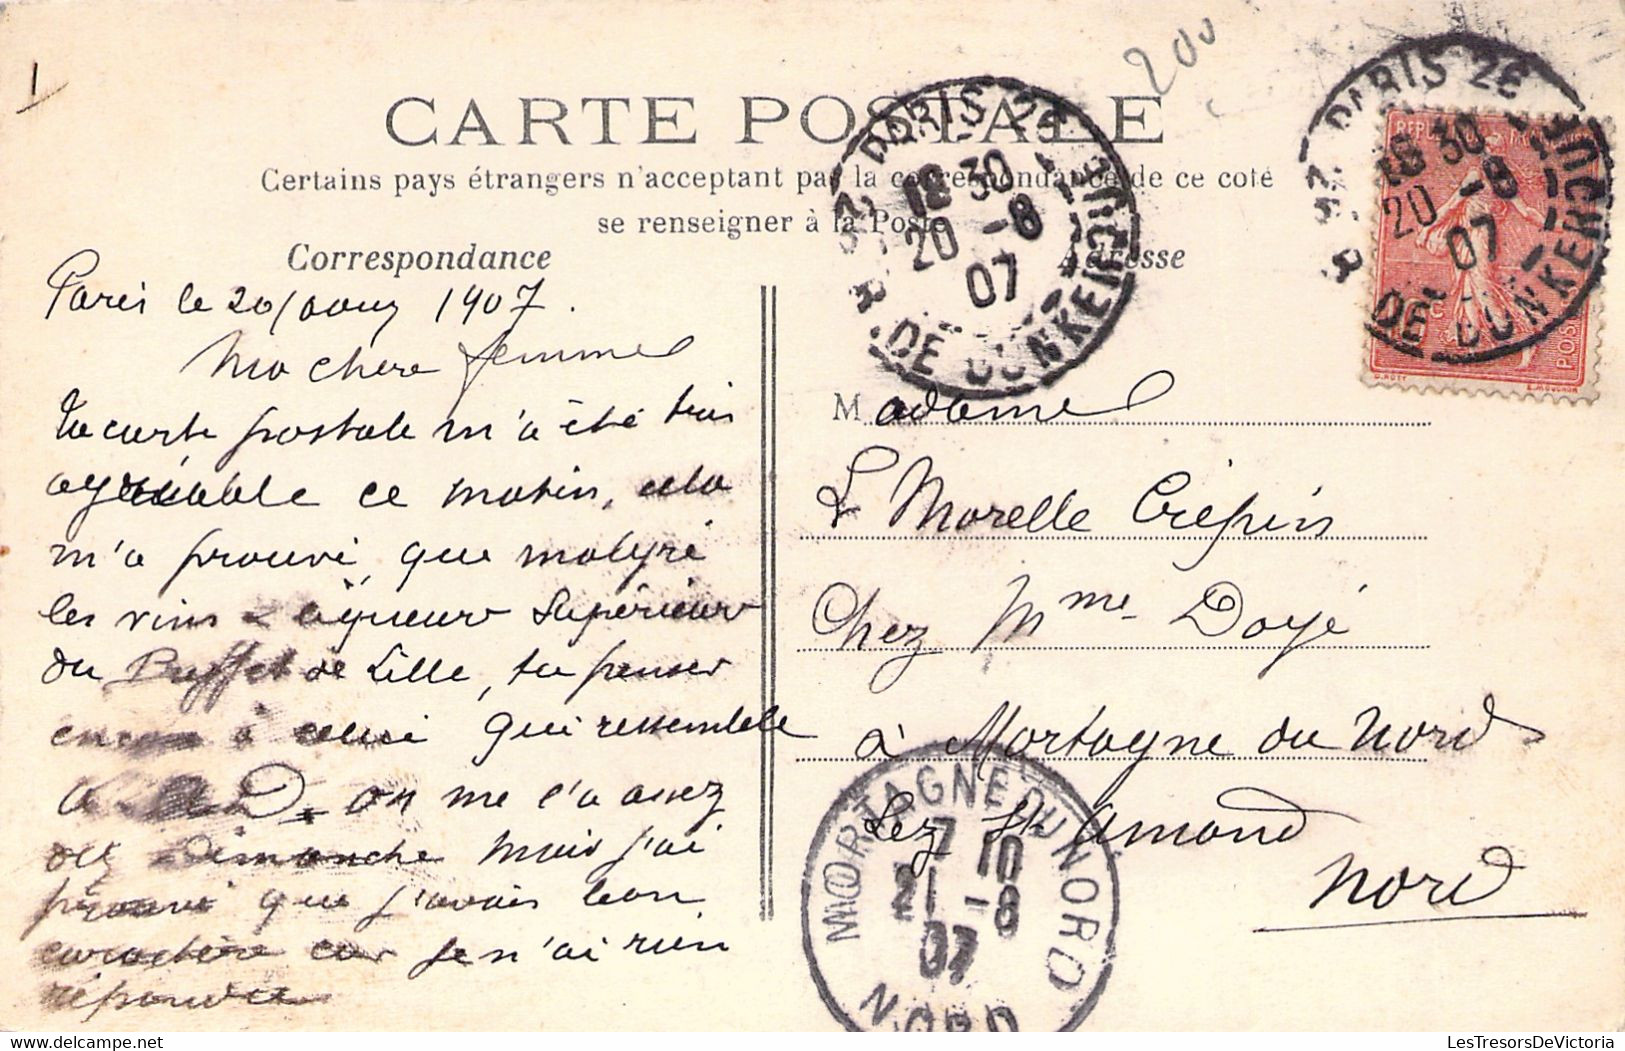 1
200
CARTE POSTALE
Certains pays étrangers n'acceptant pas la correspondance de ce coté
se renseigner à la Poste
Correspondance
Adresse
Paris le 20/aout 1907.
Ma chere femme
ta carte postale m'a été très
agréable ce matin, cela
m'a prouvé que malgré
les vins liqueurs Supérieurs
du Buffet de Lille, tu penses
encore à celui qui ressemble
a D. on me l'a assez
dit Dimanche mais j'ai
prouvé que j'avais bon
caractère car je n'ai rien
répondu
Madame
L Morelle Crépin
Chez Mme Doyé
à Mortagne du Nord
Lez St Amand
Nord
PARIS 26
18 30
20 -8
07
R. DE DUNKERQUE
PARIS 26
18 30
20 -8
07
R. DE DUNKERQUE
POSTES
MORTAGNE DU NORD
7 10
21 -8
07
NORD
LesTresorsDeVictoria